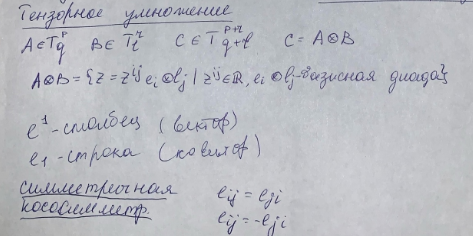 Тензорное умножение
A ∈ T_q^p   B ∈ T_l^r   C ∈ T_{q+l}^{p+r}   C = A⊗B
A⊗B = {z = z^{ij} e_i ⊗ e_j | z^{ij} ∈ ℝ, e_i ⊗ e_j - базисная диада}
e^1 - столбец (вектор)
e_1 - строка (ковектор)
симметричная   e_{ij} = e_{ji}
кососимметр.   e_{ij} = -e_{ji}